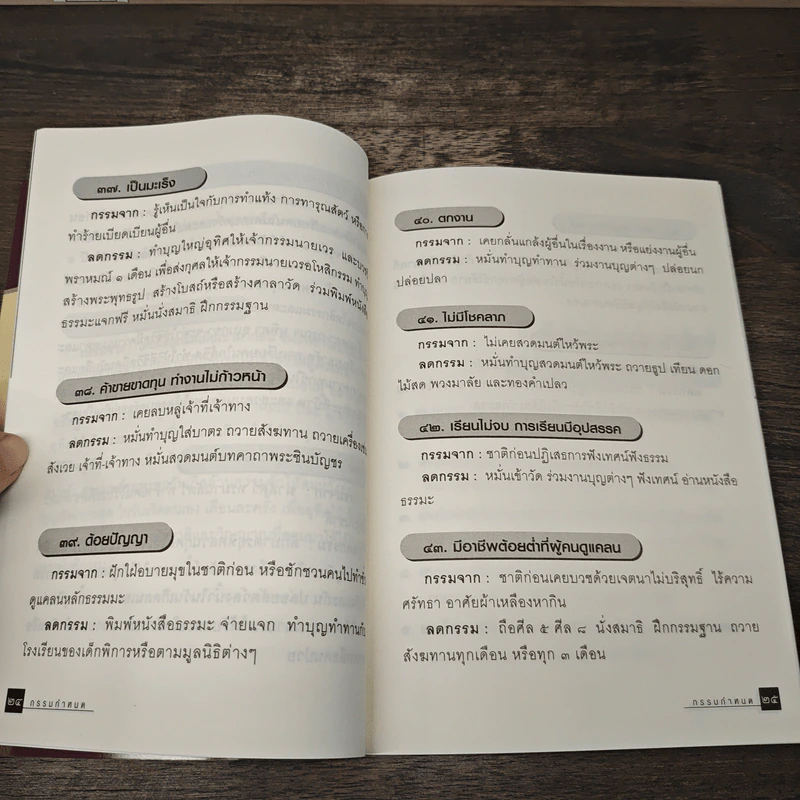 ๓๗. เป็นมะเร็ง
กรรมจาก : รู้เห็นเป็นใจกับการทำแท้ง การทารุณสัตว์ หรือการ
ทำร้ายเบียดเบียนผู้อื่น
ลดกรรม : ทำบุญใหญ่อุทิศให้เจ้ากรรมนายเวร และบวช
พราหมณ์ ๑ เดือน เพื่อส่งกุศลให้เจ้ากรรมนายเวรอโหสิกรรม ทำบุญ
สร้างพระพุทธรูป สร้างโบสถ์หรือสร้างศาลาวัด ร่วมพิมพ์หนังสือ
ธรรมะแจกฟรี หมั่นนั่งสมาธิ ฝึกกรรมฐาน
๓๘. ค้าขายขาดทุน ทำงานไม่ก้าวหน้า
กรรมจาก : เคยลบหลู่เจ้าที่เจ้าทาง
ลดกรรม : หมั่นทำบุญใส่บาตร ถวายสังฆทาน ถวายเครื่อง
สังเวย เจ้าที่-เจ้าทาง หมั่นสวดมนต์บทคาถาพระชินบัญชร
๓๙. ด้อยปัญญา
กรรมจาก : ฝักใฝ่อบายมุขในชาติก่อน หรือชักชวนคนไปทำชั่ว
ดูแคลนหลักธรรมมะ
ลดกรรม : พิมพ์หนังสือธรรมะ จ่ายแจก ทำบุญทำทานกับ
โรงเรียนของเด็กพิการหรือตามมูลนิธิต่างๆ
๒๔ กรรมกำหนด
๔๐. ตกงาน
กรรมจาก : เคยกลั่นแกล้งผู้อื่นในเรื่องงาน หรือแย่งงานผู้อื่น
ลดกรรม : หมั่นทำบุญทำทาน ร่วมงานบุญต่างๆ ปล่อยนก
ปล่อยปลา
๔๑. ไม่มีโชคลาภ
กรรมจาก : ไม่เคยสวดมนต์ไหว้พระ
ลดกรรม : หมั่นทำบุญสวดมนต์ไหว้พระ ถวายธูป เทียน ดอก
ไม้สด พวงมาลัย และทองคำเปลว
๔๒. เรียนไม่จบ การเรียนมีอุปสรรค
กรรมจาก : ชาติก่อนปฏิเสธการฟังเทศน์ฟังธรรม
ลดกรรม : หมั่นเข้าวัด ร่วมงานบุญต่างๆ ฟังเทศน์ อ่านหนังสือ
ธรรมะ
๔๓. มีอาชีพต้อยต่ำที่ผู้คนดูแคลน
กรรมจาก : ชาติก่อนเคยบวชด้วยเจตนาไม่บริสุทธิ์ ไร้ความ
ศรัทธา อาศัยผ้าเหลืองหากิน
ลดกรรม : ถือศีล ๕ ศีล ๘ นั่งสมาธิ ฝึกกรรมฐาน ถวาย
สังฆทานทุกเดือน หรือทุก ๓ เดือน
กรรมกำหนด ๒๕